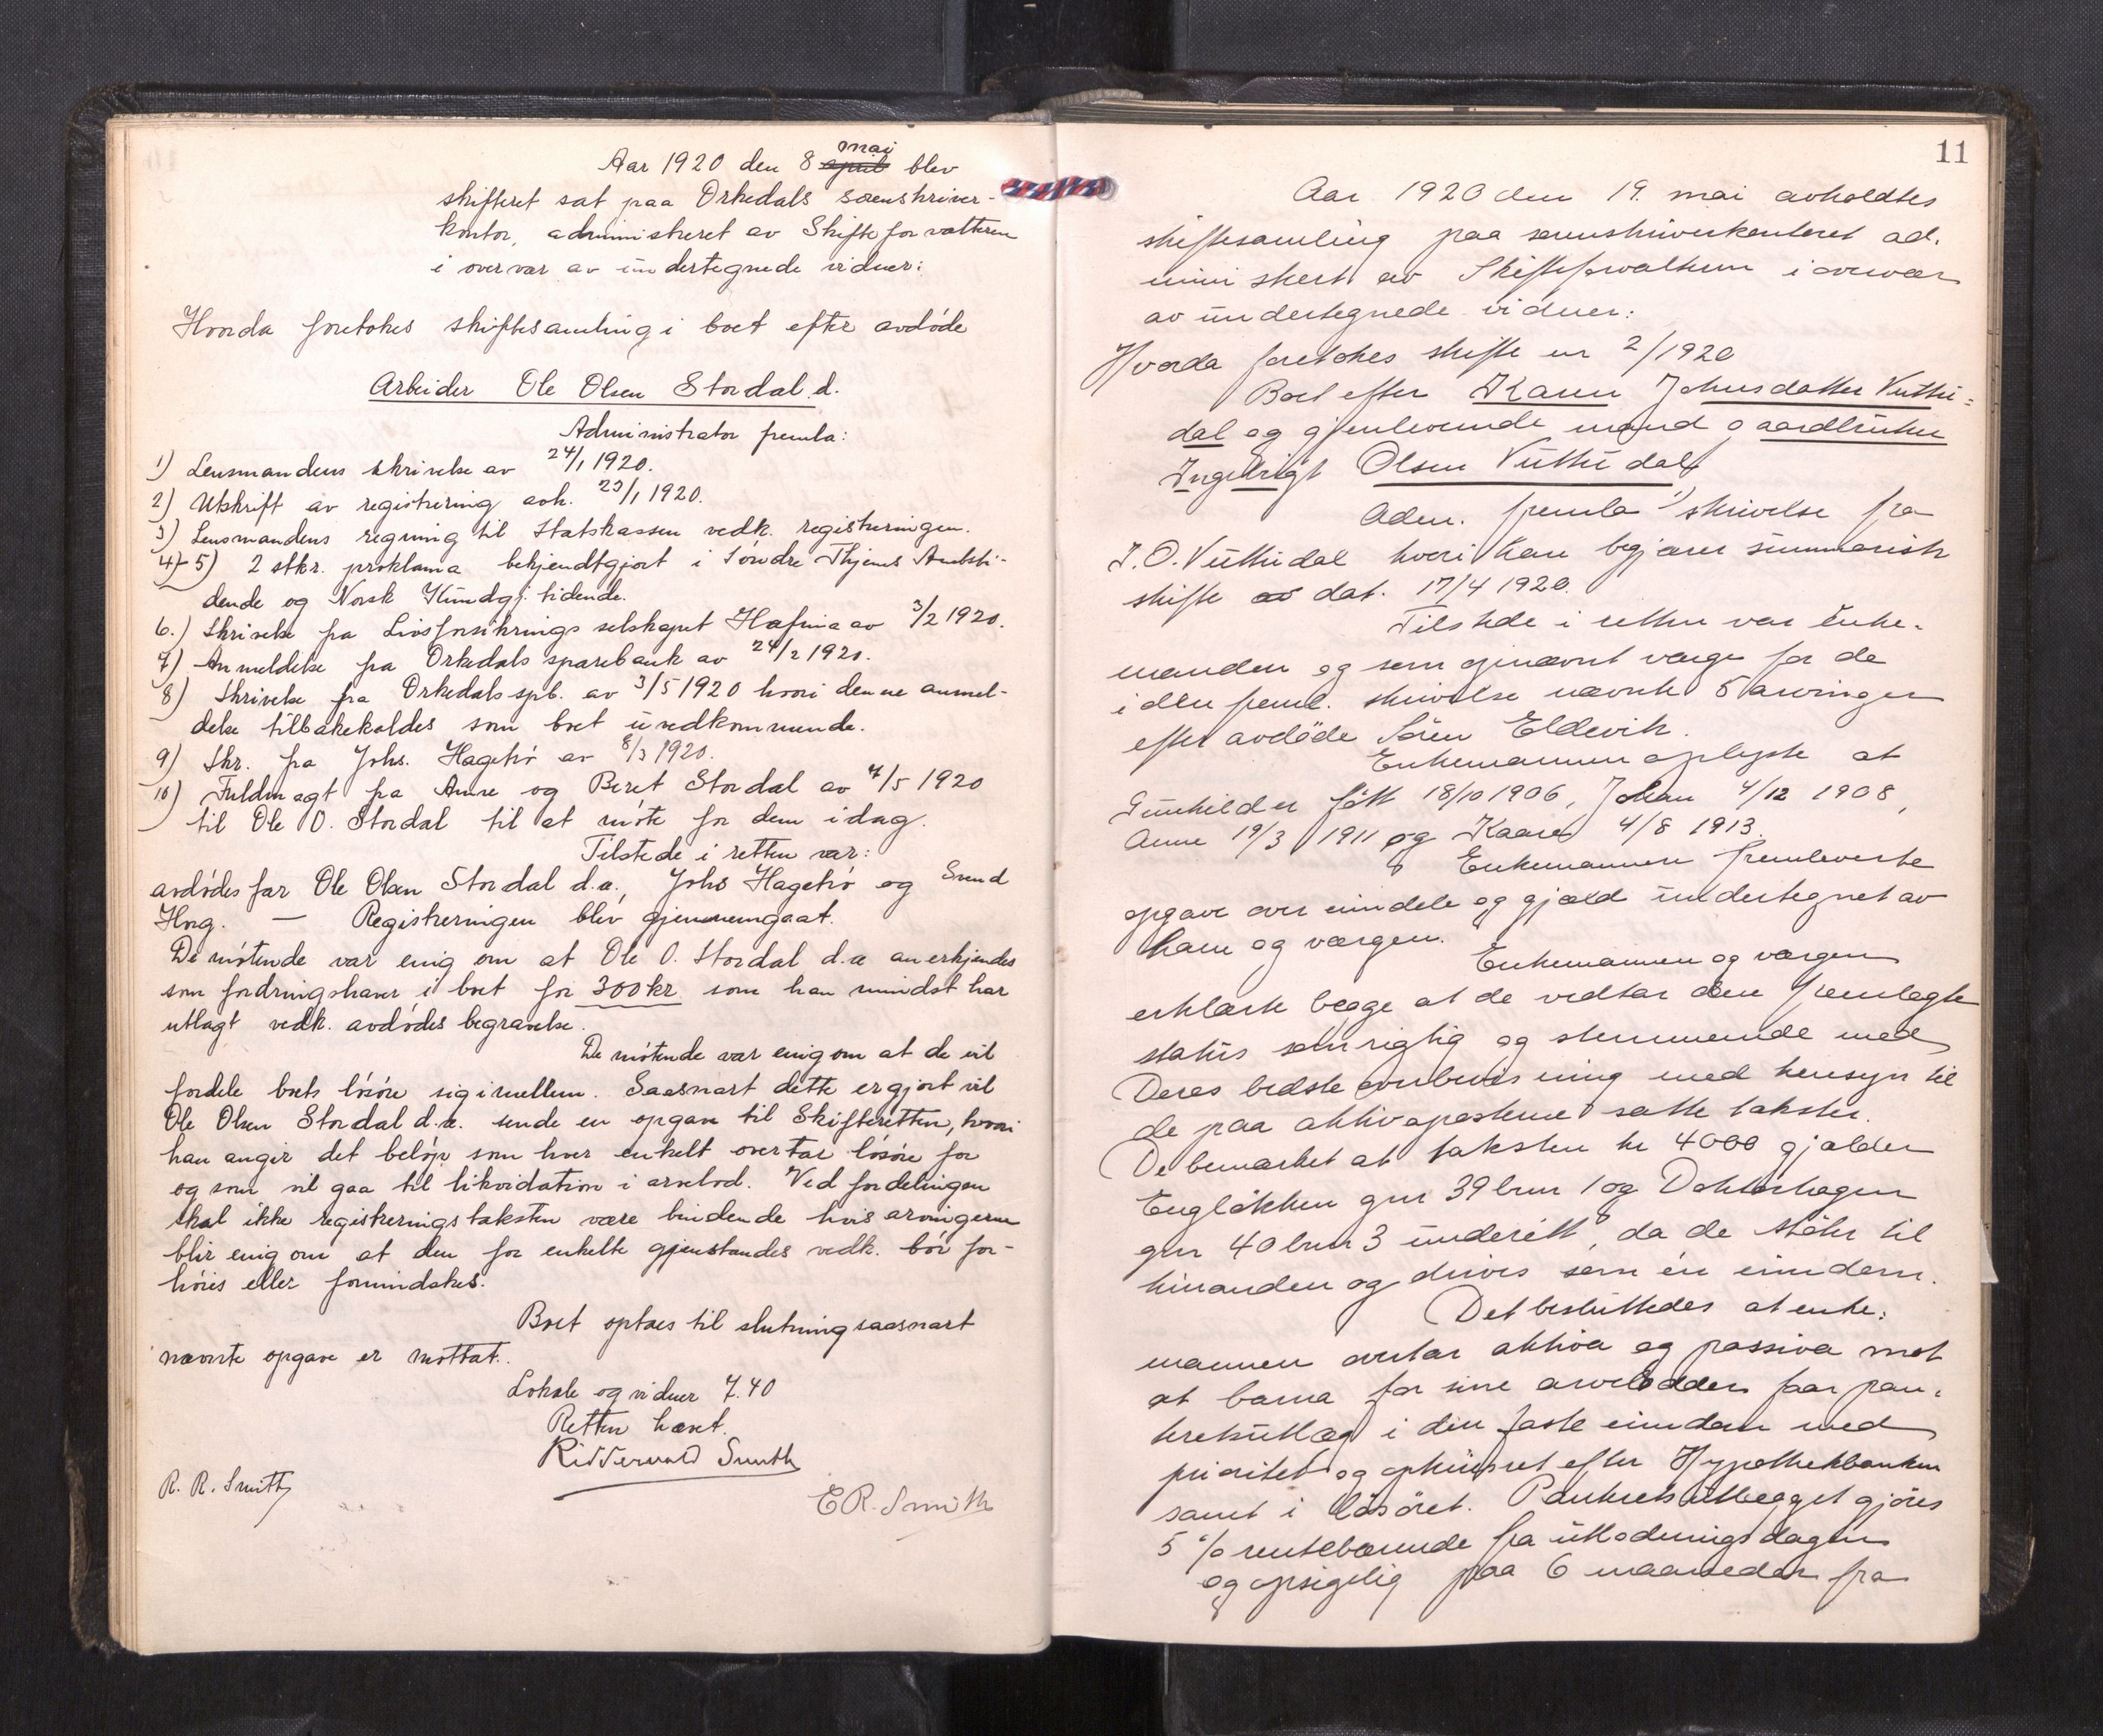 Aar 1920 den 8 april mai blev
skifteret sat paa Orkedals sorenskriver-
kontor, administreret av Skifteforvalteren
i overvær av undertegnede vidner:
Hvorda foretokes skiftesamling i boet efter avdøde
Arbeider Ole Olsen Stordal d.
Administrator fremla:
1) Lensmandens skrivelse av 24/1 1920.
2) Utskrift av registrering avh. 23/1 1920.
3) Lensmandens regning til Statskassen vedk. registreringen.
4)-5) 2 stkr. proklama bekjendtgjort i Søndre Thjems Amtsti-
dende og Norsk Kundgj. tidende.
6.) Skrivelse fra Livsforsikringsselskapet Hafnia av 3/2 1920.
7) Anmeldelse fra Orkedals sparebank av 24/2 1920.
8) Skrivelse fra Orkedals spb. av 3/5 1920 hvori denne anmel-
delse tilbakekaldes som boet uvedkommende.
9) Skr. fra Johs. Hagetrø av 8/3 1920.
10) Fuldmagt fra Anne og Beret Stordal av 7/5 1920
til Ole O. Stordal til at møte for dem idag.
Tilstede i retten var:
avdødes far Ole Olsen Stordal d.æ., Johs Hagetrø og Svend
Hog. — Registreringen blev gjennemgaat.
De møtende var enig om at Ole O. Stordal d.æ anerkjendes
som fordringshaver i boet for 300 kr som han mindst har
utlagt vedk. avdødes begravelse.
De møtende var enig om at de vil
fordele boets løsøre sig imellem. Saasnart dette er gjort vil
Ole Olsen Stordal d.æ. sende en opgave til Skifteretten, hvori
han angir det beløp som hver enkelt overtar løsøre for
og som vil gaa til likvidation i arvelod. Ved fordelingen
skal ikke registreringstaksten være bindende hvis arvingerne
blir enig om at den for enkelte gjenstandes vedk. bør for-
høies eller formindskes.
Boet optaes til slutning saasnart
nævnte opgave er mottat.
Lokale og vidner 7.40
Retten hævet.
Riddervold Smith
R. R. Smith
E R. Smith
11
Aar 1920 den 19. mai avholdtes
skiftesamling paa sorenskriverkontoret ad.
ministrert av Skifteforvalteren i overvær
av undertegnede vidner:
Hvorda foretokes skifte nr 2/1920
Boet efter Karen Johnsdatter Vuttu=
dal og gjenlevende mand gaardbruker
Ingebrigt Olsen Vuttudal
Adm. fremla 1) skrivelse fra
I. O. Vuttudal hvori han begjærer summarisk
skifte av dat. 17/4 1920.
Tilstede i retten var enke-
manden og som opnævnt verge for de
i den freml. skrivelse nævnte 5 arvinger
efter avdøde Sören Eldevik.
Enkemannen oplyste at
Gunhild er født 18/10 1906, Johan 4/12 1908,
Anne 19/3 1911 og Kaare 4/8 1913.
Enkemannen fremleverte
opgave over eiendele og gjæld undertegnet av
ham og værgen.
Enkemannen og værgen
erklærte begge at de vedtar den fremlagte
status som rigtig og stemmende med
Deres bedste overbevisning med hensyn til
de paa aktivaposterne satte takster.
De bemærket at taksten kr 4000 gjælder
Engløkken gnr 39 bnr 1 og Doktorhagen
gnr 40 bnr 3 underett, da de støter til
hinanden og drives som én eiendom.
Det besluttedes at enke-
mannen overtar aktiva og passiva mot
at barna for sine arvelodder faar pan-
teretsutlæg i den faste eiendom med
prioritet og opknyttet efter Hypothekbanken
samt i løsøret. Panteretsutlægget gjøres
5 % rentebærende fra utlodningsdagen
og opsigelig paa 6 maaneder fra